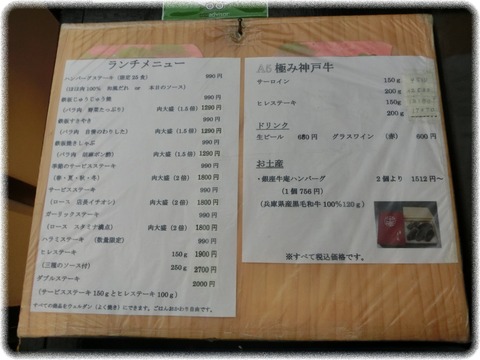 ランチメニュー
ハンバーグステーキ (限定35食) 990円
(ほほ肉100% 和風だれ or 本日のソース)
鉄板じゅうじゅう焼 990円
(バラ肉 野菜たっぷり) 肉大盛 (1.5倍) 1290円
鉄板すきやき 990円
(バラ肉 自慢のわりした) 肉大盛 (1.5倍) 1290円
鉄板焼きしゃぶ 990円
(バラ肉 胡麻ポン酢) 肉大盛 (1.5倍) 1290円
季節のサービスステーキ 990円
(春・夏・秋・冬) 肉大盛 (2倍) 1800円
サービスステーキ 990円
(ロース 店長イチオシ) 肉大盛 (2倍) 1800円
ガーリックステーキ 990円
(ロース スタミナ満点) 肉大盛 (2倍) 1800円
ハラミステーキ (数量限定) 990円
ヒレステーキ 150g 1900円
(三種のソース付) 250g 2700円
ダブルステーキ 2000円
(サービスステーキ150gとヒレステーキ100g)
すべての商品をウェルダン(よく焼き)にできます。ごはんおかわり自由です。
A5極み神戸牛
サーロイン 150g
200g
ヒレステーキ 150g
200g
ドリンク
生ビール 680円 グラスワイン (赤) 600円
お土産
・銀座牛庵ハンバーグ 2個より 1512円~
(1個756円)
(兵庫県産黒毛和牛100%120g)
※すべて税込価格です。